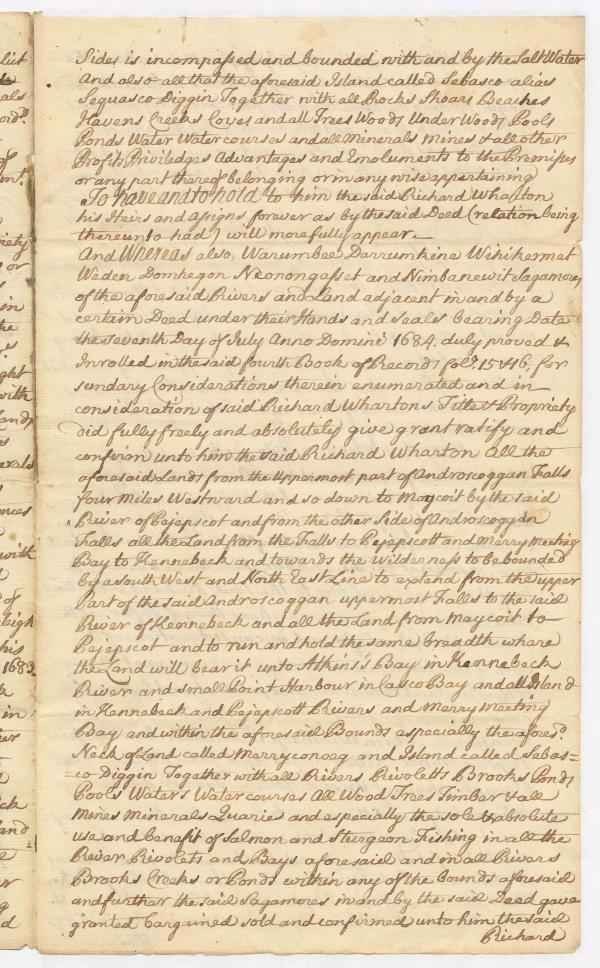 Sides is incompassed and bounded with and by the Salt Water
And also all that the aforesaid Island called Sebasco alias
Sequasco Diggin Together with all Rocks Shoars Beaches
Havens Creeks Coves and all Trees Woods Under Woods Pools
Ponds Water Water courses and all Minerals Mines & all other
Profits Priviledges Advantages and Emoluments to the Premises
or any part thereof belonging or in any wise appertaining
To have and to hold to him the said Richard Wharton
his Heirs and assigns forever as by the said Deed (relation being
thereunto had) will more fully appear.
And Whereas also, Warumbee Darrumkine Wihikermet
Weden Domhegon Neonongasset and Nimbanewit Sagamores
of the aforesaid Rivers and Land adjacent in and by a
certain Deed under their Hands and seals bearing Date
the seventh Day of July Anno Domini 1684, duly proved &
Inrolled in the said fourth Book of Records fol.º 15 & 16, for
sundary Considerations therein enumerated and in
consideration of said Richard Whartons Title & Propriety
did fully freely and absolutely give grant ratify and
confirm unto him the said Richard Wharton All the
aforesaid Lands from the Uppermost part of Androscoggan Falls
four Miles Westward and so down to Maycoit by the said
River of Pejepscot and from the other Side of Androscoggan
Falls all the Land from the Falls to Pejepscott and Merry Meeting
Bay to Kennebeck and towards the Wilderness to be bounded
by a south West and North East Line to extend from the upper
part of the said Androscoggan uppermost Falls to the said
River of Kennebeck and all the Land from Maycoit to
Pejepscot and to run and hold the same breadth where
the Land will bear it unto Atkins's Bay in Kennebeck
River and small Point Harbour in Casco Bay and all Island
in Kennebeck and Pejepscott Rivers and Merry Meeting
Bay and within the aforesaid Bounds especially the afores.d
Neck of Land called Merryconeg and Island called Sebas=
=co Diggin Together with all Rivers Rivoletts Brooks Ponds
Pools Waters Water courses All Wood Trees Timber & all
Mines Minerals Quaries and especially the sole & absolute
use and benefit of Salmon and Sturgeon Fishing in all the
River Rivolets and Bays aforesaid and in all Rivers
Brooks Creeks or Ponds within any of the bounds aforesaid
and further the said Sagamores in and by the said Deed gave
granted bargained sold and confirmed unto him the said
Richard